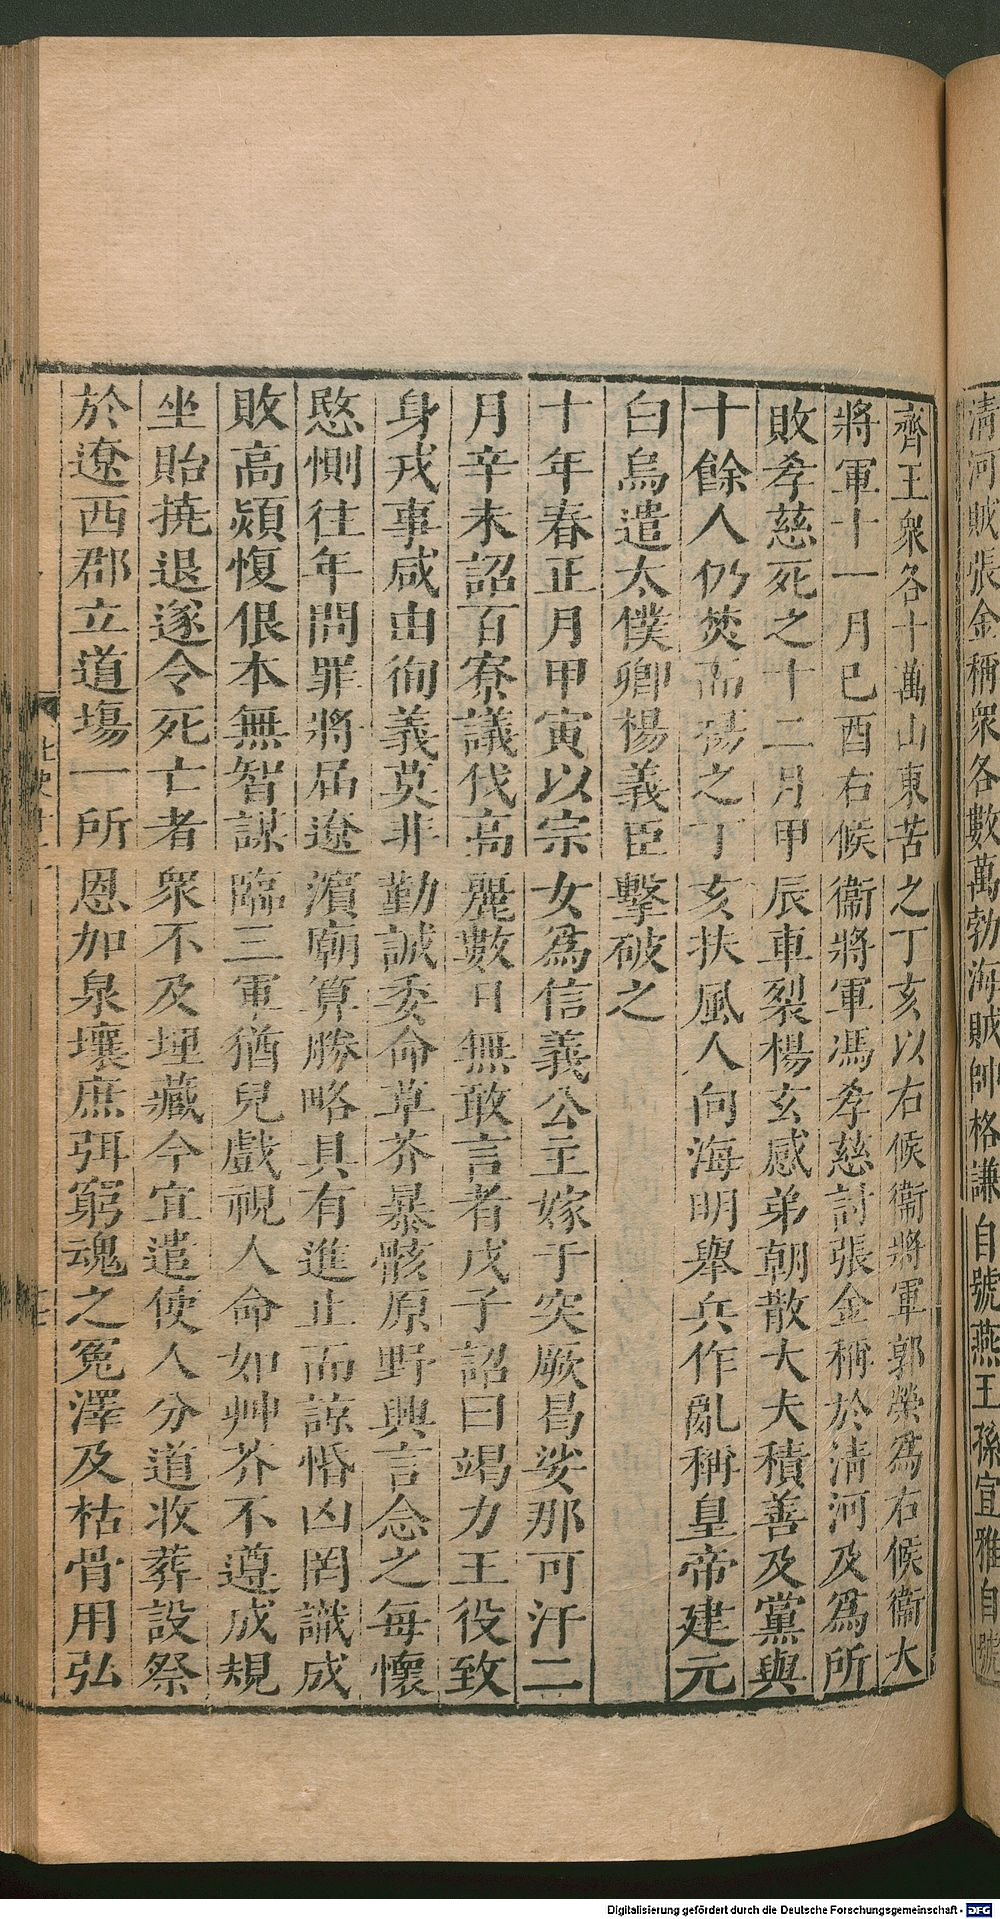 清河賊張金稱衆各數萬勃海賊帥格謙自號燕王孫宣雅自號
齊王衆各十萬山東苦之丁亥以右候衞將軍郭榮爲右候衞大
將軍十一月己酉右候衞將軍馮孝慈討張金稱於清河及爲所
敗孝慈死之十二月甲辰車裂楊玄感弟朝散大夫積善及黨與
十餘人仍焚而揚之丁亥扶風人向海明舉兵作亂稱皇帝建元
白烏遣太僕卿楊義臣擊破之
十年春正月甲寅以宗女爲信義公主嫁于突厥曷娑那可汗二
月辛未詔百寮議伐高麗數日無敢言者戊子詔曰竭力王役致
身戎事咸由徇義莫非勤誠委命草芥暴骸原野興言念之每懷
愍惻往年問罪將届遼濱廟算勝略具有進止而諒惛凶罔識成
敗高熲愎佷本無智謀臨三軍猶兒戲視人命如艸芥不遵成規
坐貽撓退遂令死亡者衆不及埋藏今宜遣使人分道收葬設祭
於遼西郡立道塲一所恩加泉壤庶弭窮魂之冤澤及枯骨用弘
Digitalisierung gefördert durch die Deutsche Forschungsgemeinschaft - DFG